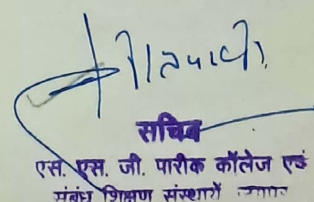 सचिव
एस. एस. जी. पारीक कॉलेज एवं
संबंध शिक्षण संस्थायें